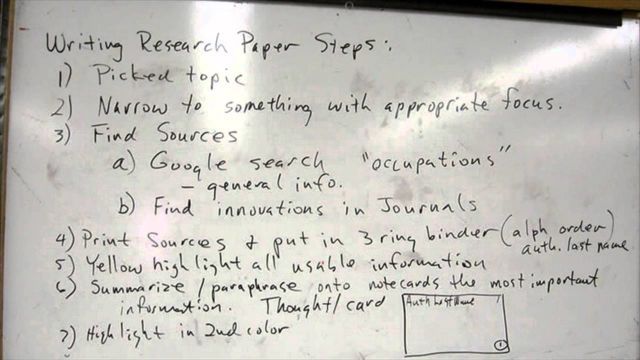 Writing Research Paper Steps:
1) Picked topic
2) Narrow to something with appropriate focus.
3) Find Sources
a) Google search "occupations"
- general info.
b) Find innovations in Journals
4) Print Sources & put in 3 ring binder (alph order)
auth. last name
5) Yellow highlight all usable information
6) Summarize / paraphrase onto notecards the most important
information. Thought/card
Auth Last Name
7) Highlight in 2nd color